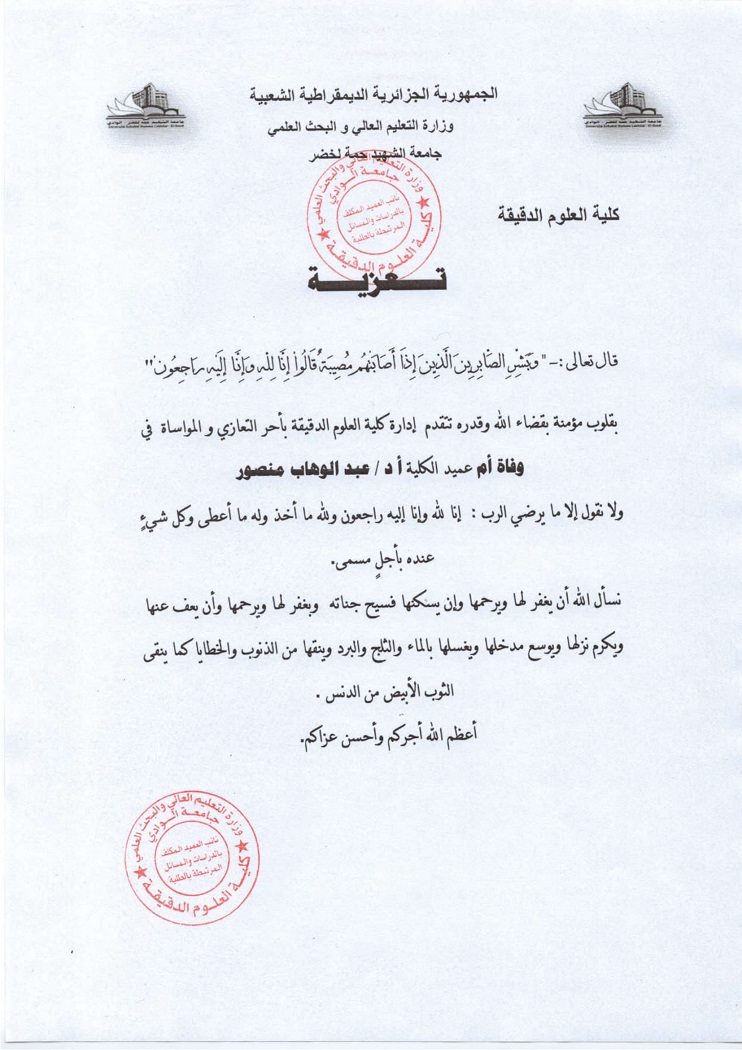 الجمهورية الجزائرية الديمقراطية الشعبية
وزارة التعليم العالي و البحث العلمي
جامعة الشهيد حمة لخضر
كلية العلوم الدقيقة
وزارة التعليم العالي والبحث العلمي
جامعة الوادي
نائب العميد المكلف
بالدراسات والمسائل
المرتبطة بالطلبة
كلية العلوم الدقيقة
تعزية
قال تعالى :– "وَبَشِّرِ الصَّابِرِينَ الَّذِينَ إِذَا أَصَابَتْهُم مُّصِيبَةٌ قَالُواْ إِنَّا لِلّهِ وَإِنَّا إِلَيْهِ رَاجِعُونَ"
بقلوب مؤمنة بقضاء الله وقدره تتقدم إدارة كلية العلوم الدقيقة بأحر التعازي و المواساة في
وفاة أم عميد الكلية أ د / عبد الوهاب منصور
ولا نقول إلا ما يرضي الرب : إنا لله وإنا إليه راجعون ولله ما أخذ وله ما أعطى وكل شيءٍ
عنده بأجلٍ مسمى.
نسأل الله أن يغفر لها ويرحمها وإن يسكنها فسيح جناته ويغفر لها ويرحمها وأن يعف عنها
ويكرم نزلها ويوسع مدخلها ويغسلها بالماء والثلج والبرد وينقها من الذنوب والخطايا كما ينقى
الثوب الأبيض من الدنس .
أعظم الله أجركم وأحسن عزاكم.
وزارة التعليم العالي والبحث العلمي
جامعة الوادي
نائب العميد المكلف
بالدراسات والمسائل
المرتبطة بالطلبة
كلية العلوم الدقيقة